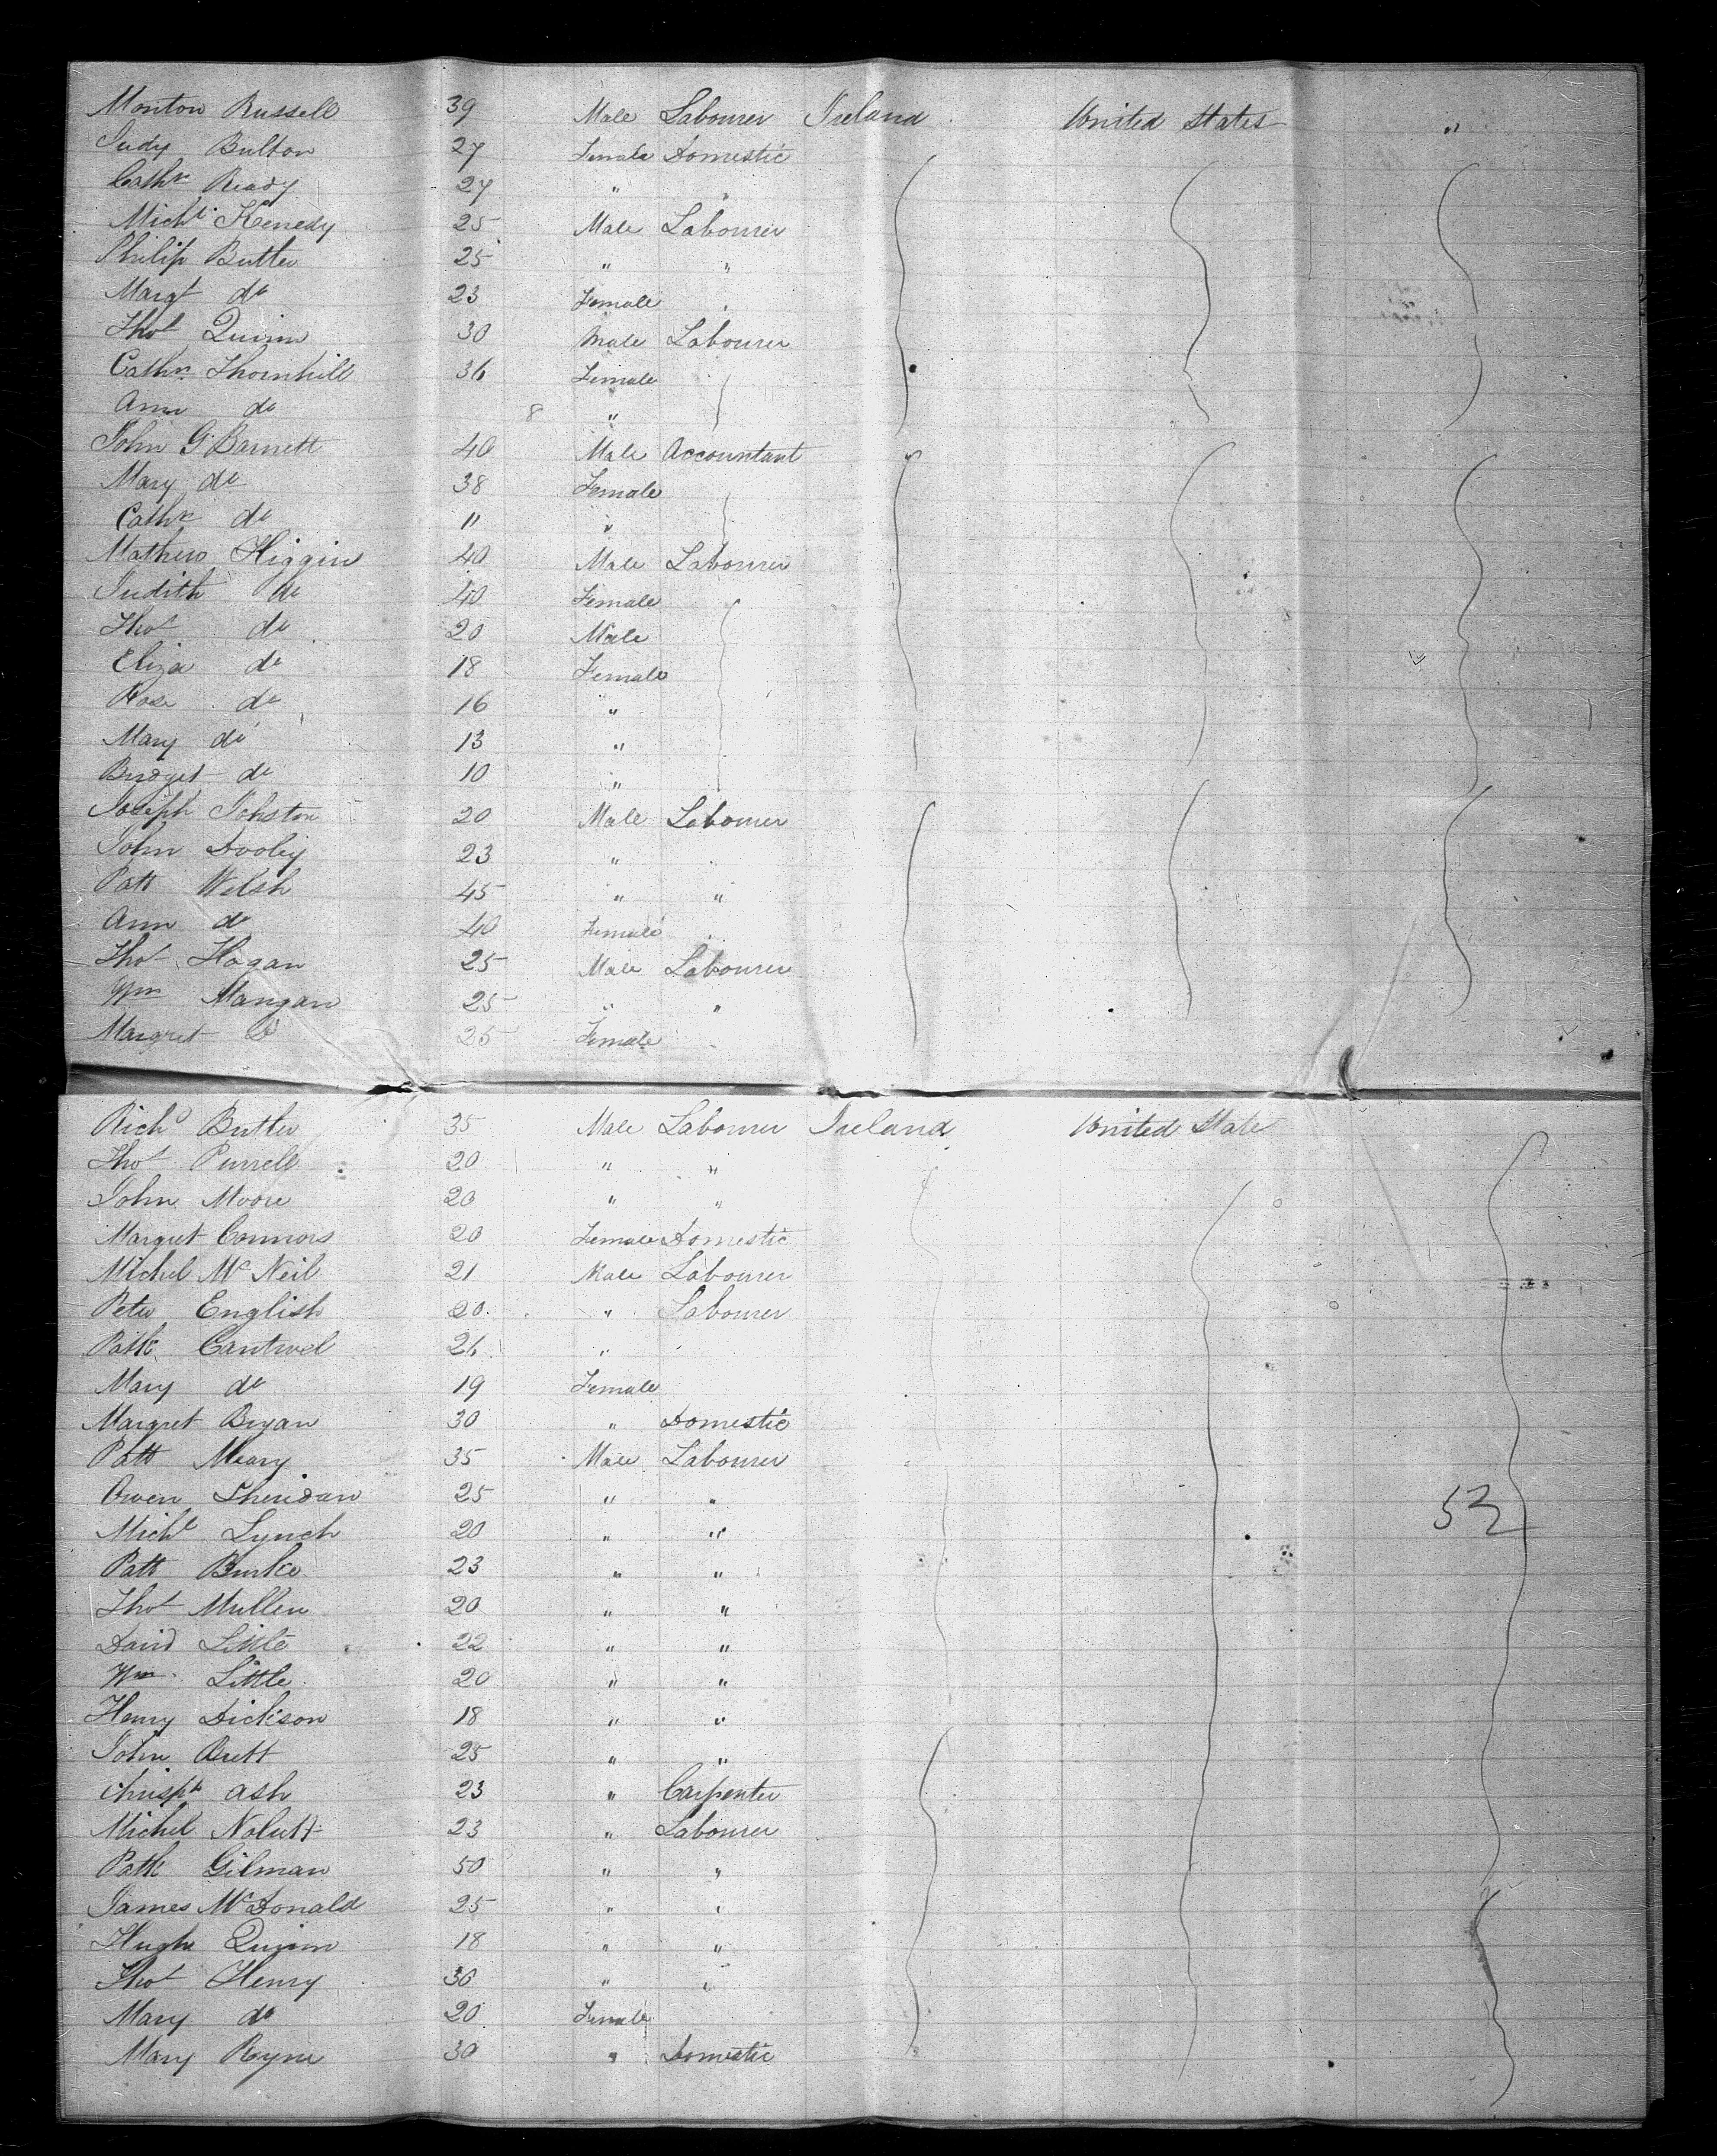 Monton Russell 39 Male Labourer Ireland United States "
Judy Bulton 27 Female Domestic
Cathn Ready 27 " "
Michl Kenedy 25 Male Labourer
Philip Butler 25 " "
Margt do 23 Female
Thos Quinn 30 Male Labourer
Cathn Thornhill 36 Female
Ann do 8 "
John G Barnett 40 Male Accountant
Mary do 38 Female
Cathn do 11 "
Mathew Higgin 40 Male Labourer
Judith do 40 Female
Thos do 20 Male
Eliza do 18 Female
Rose do 16 "
Mary do 13 "
Bridget do 10 "
Joseph Johston 20 Male Labourer
John Dooley 23 "
Patt Welsh 45 " "
Ann do 40 Female
Thos Hagan 25 Male Labourer
Wm Mangan 25 " "
Margret Do 25 Female
Richd Butler 35 Male Labourer Ireland United State
Thos Purrell 20 " "
John Moore 20 " "
Margret Connors 20 Female Domestic
Michel McNeil 21 Male Labourer
Peter English 20 " Labourer
Patk Cantwel 26 "
Mary do 19 Female
Margret Bryan 30 " Domestic
Patt Meary 35 Male Labourer
Owen Sheridan 25 " "
Michl Lynch 20 " " 52
Patt Burke 23 " "
Thos Mullen 20 " "
David Little 22 " "
Wm Little 20 " "
Henry Dickson 18 " "
John Brett 25 " "
Chrispr Ash 23 " Carpenter
Michel 23 " Labourer
Patk Gilman 50 " "
James McDonald 25 " "
Hugh Quinn 18 " "
Thos Henry 30 " "
Mary do 20 Female
Mary Ryne 30 " Domestic